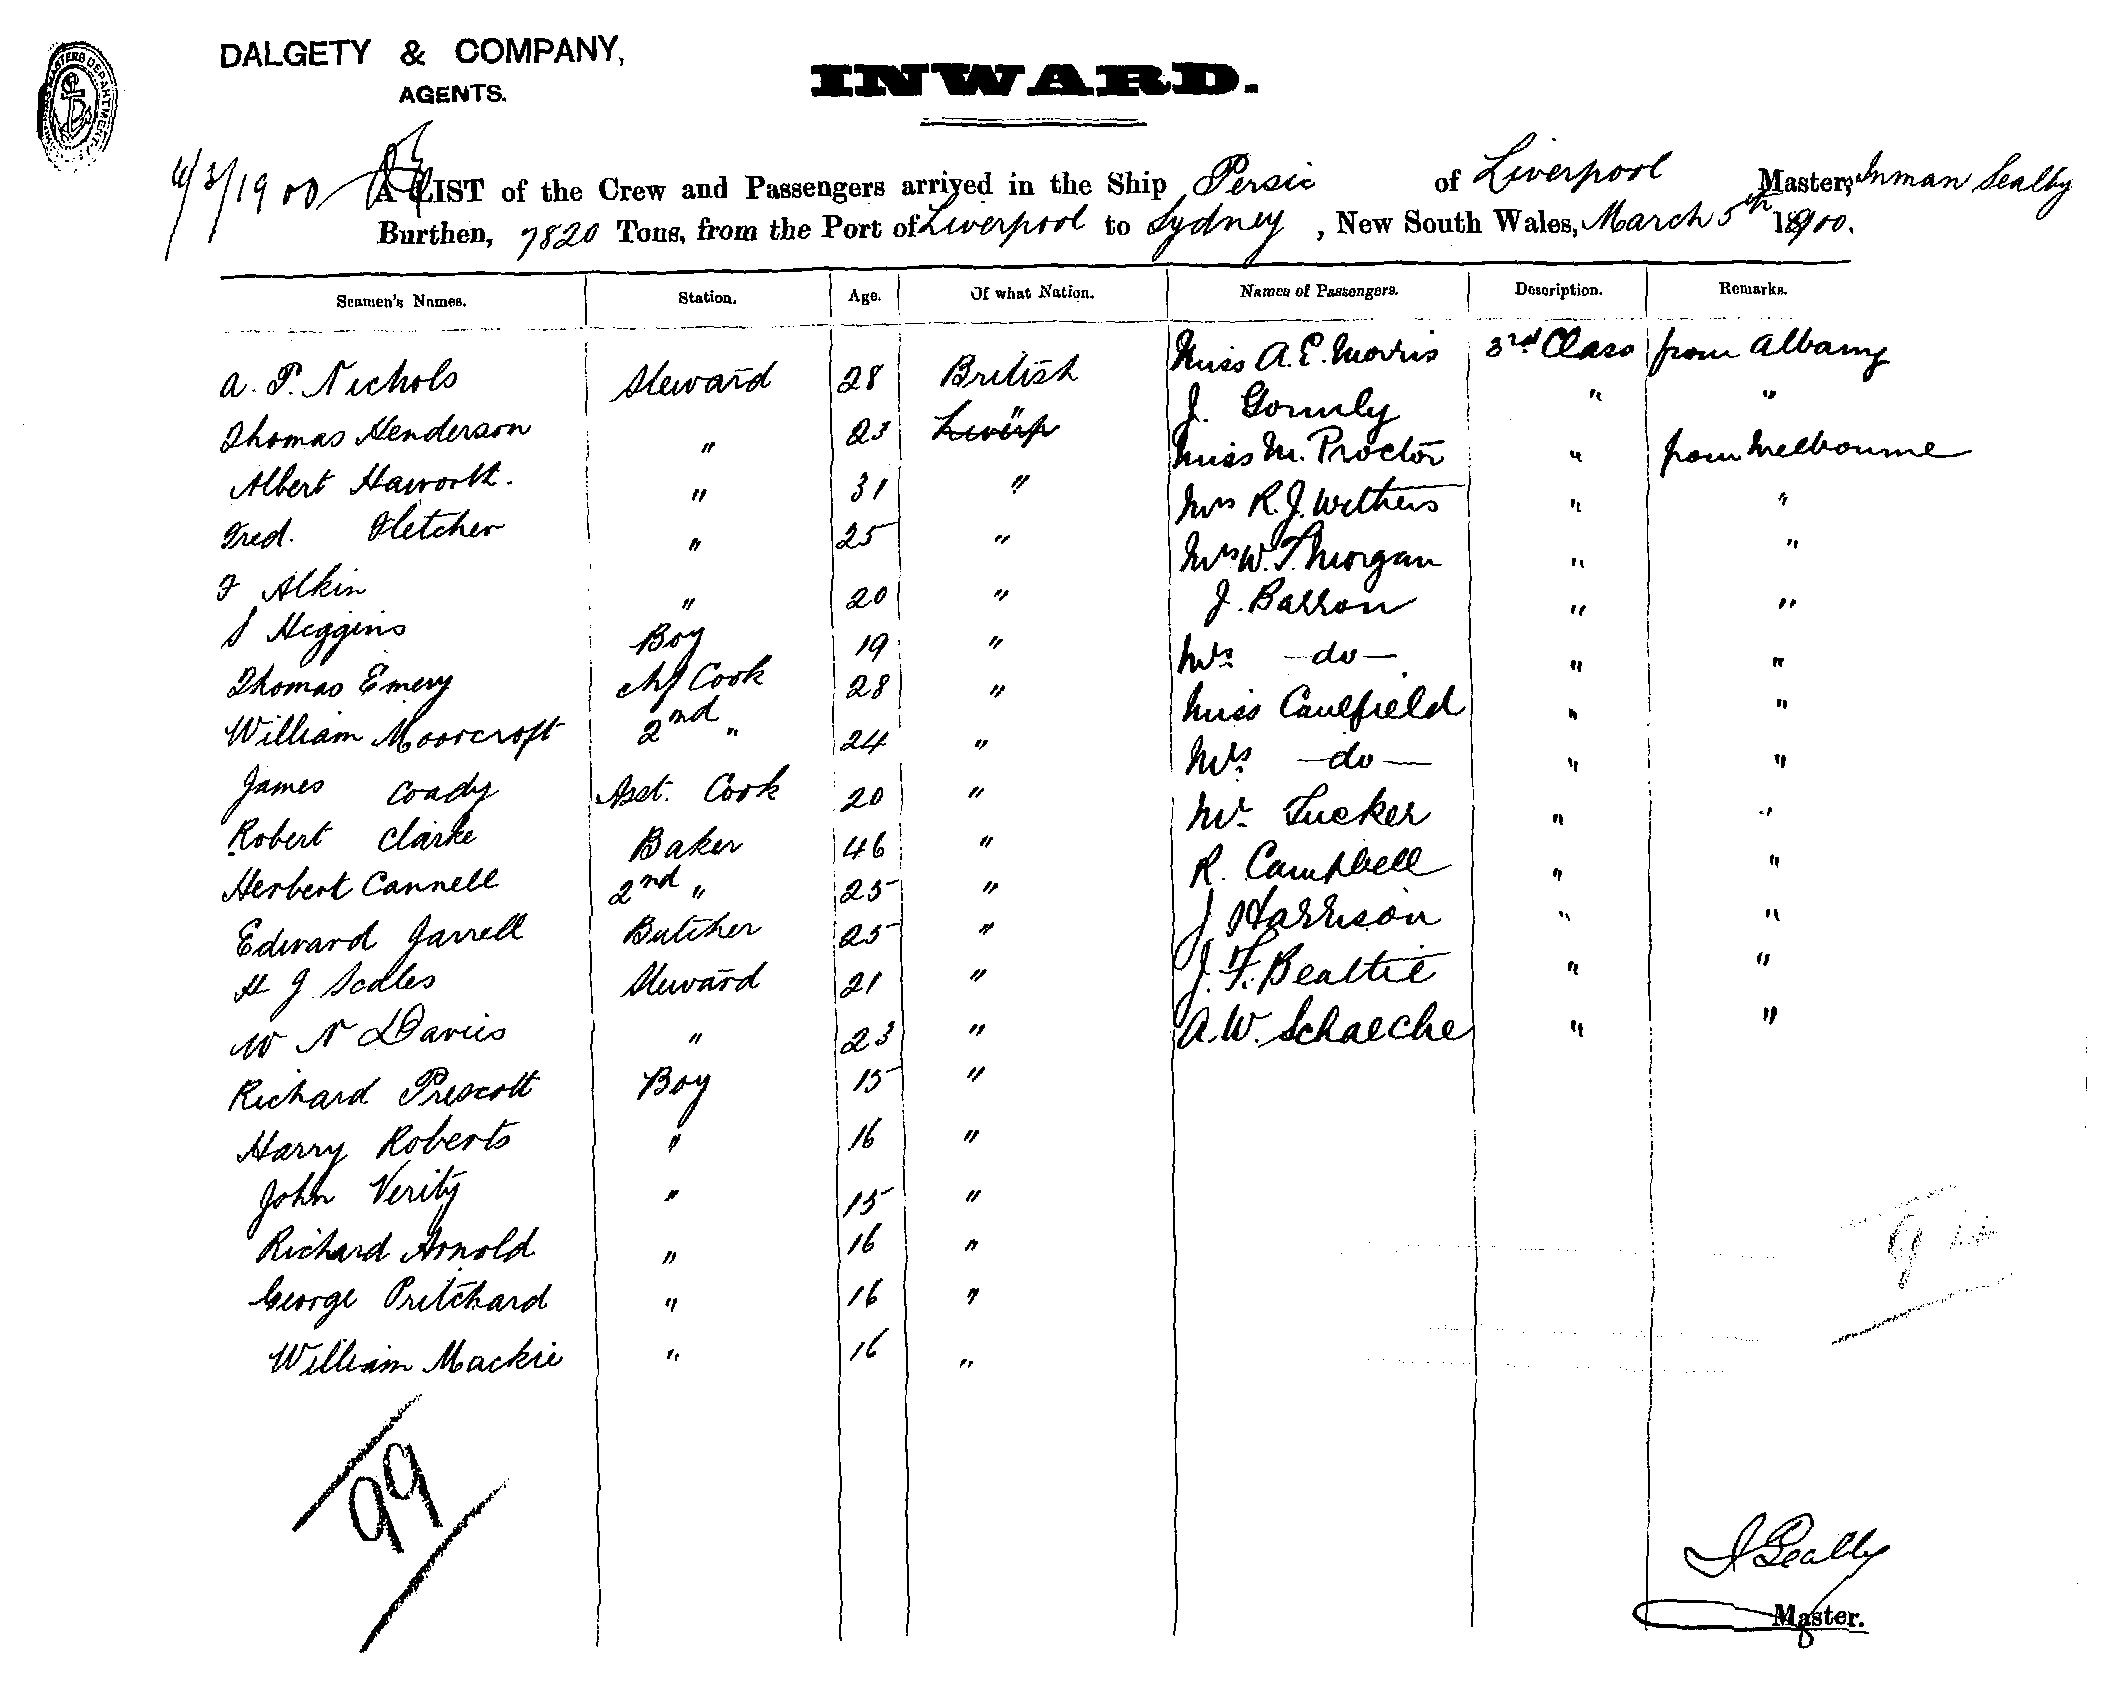 DALGETY & COMPANY,
AGENTS.
INWARD.
6/3/1900
A LIST of the Crew and Passengers arrived in the Ship Persic of Liverpool Master, Inman Sealby
Burthen, 7820 Tons, from the Port of Liverpool to Sydney, New South Wales, March 5th 1900.
Seamen's Names. Station. Age. Of what Nation. Names of Passengers. Description. Remarks.
A. P. Nichols Steward 28 British Miss A. E. Morris 3rd Class from Albany
Thomas Henderson " 23 L'verp " J. Gormly " "
Albert Haworth. " 31 " Miss M. Proctor " from Melbourne
Fred. Fletcher " 25 " Mrs R. J. Withers " "
F Alkin " 20 " Mrs W. T. Morgan " "
S Higgins Boy 19 " J. Barron " "
Thomas Emery Chf Cook 28 " Mrs —do— " "
William Moorcroft 2nd " 24 " Miss Caulfield " "
James Coady Asst. Cook 20 " Mrs —do— " "
Robert Clarke Baker 46 " Mr Tucker " "
Herbert Cannell 2nd " 25 " R. Campbell " "
Edward Jarrell Butcher 25 " J Harrison " "
H J Scales Steward 21 " J. F. Beattie " "
W N Davies " 23 " A. W. Schaeche " "
Richard Prescott Boy 15 "
Harry Roberts " 16 "
John Verity " 15 "
Richard Arnold " 16 "
George Pritchard " 16 "
William Mackie " 16 "
99
I Sealby
Master.